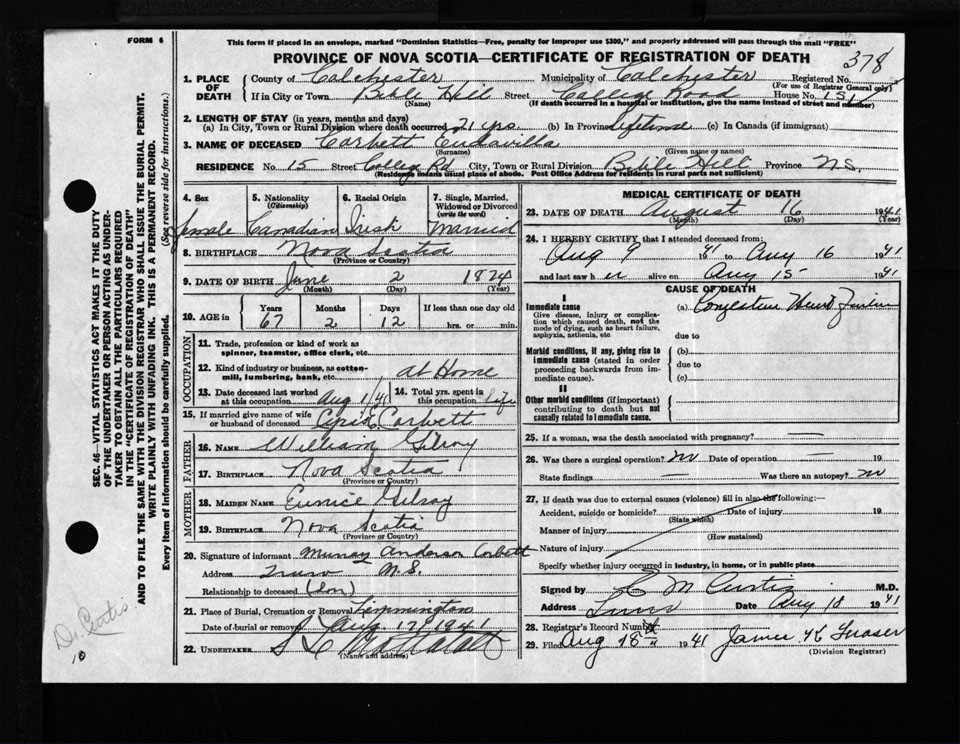 FORM 6
This form if placed in an envelope, marked "Dominion Statistics—Free, penalty for improper use $300," and properly addressed will pass through the mail "FREE"
PROVINCE OF NOVA SCOTIA—CERTIFICATE OF REGISTRATION OF DEATH
378
1. PLACE OF DEATH
County of Colchester Municipality of Colchester Registered No.
(For use of Registrar General only)
If in City or Town Bible Hill Street College Road House No. 15
(Name) (If death occurred in a hospital or institution, give the name instead of street and number)
2. LENGTH OF STAY (in years, months and days)
(a) In City, Town or Rural Division where death occurred 21 yrs (b) In Province Lifetime (c) In Canada (if immigrant)
3. NAME OF DECEASED Corbett Eudavilla
(Surname) (Given name or names)
RESIDENCE No. 15 Street College Rd City, Town or Rural Division Bible Hill Province N.S.
(Residence means usual place of abode. Post Office Address for residents in rural parts not sufficient)
4. Sex
female
5. Nationality
(Citizenship)
Canadian
6. Racial Origin
Irish
7. Single, Married, Widowed or Divorced
(write the word)
Married
8. BIRTHPLACE Nova Scotia
(Province or Country)
9. DATE OF BIRTH June 2 1874
(Month) (Day) (Year)
10. AGE in Years Months Days If less than one day old
67 2 12 hrs. or min.
OCCUPATION
11. Trade, profession or kind of work as spinner, teamster, office clerk, etc.
12. Kind of industry or business, as cotton-mill, lumbering, bank, etc. at Home
13. Date deceased last worked at this occupation Aug 1/41
14. Total yrs. spent in this occupation life
15. If married give name of wife or husband of deceased Corbett
FATHER
16. NAME William Gilroy
17. BIRTHPLACE Nova Scotia
(Province or Country)
MOTHER
18. MAIDEN NAME Eunice Gilroy
19. BIRTHPLACE Nova Scotia
(Province or Country)
20. Signature of informant Murray Anderson Corbett
Address Truro N.S.
Relationship to deceased (Son)
21. Place of Burial, Cremation or Removal
Date of burial or removal Aug 17/1941
22. UNDERTAKER
(Name and address)
MEDICAL CERTIFICATE OF DEATH
23. DATE OF DEATH August 16 1941
(Month) (Day) (Year)
24. I HEREBY CERTIFY that I attended deceased from:
Aug 9 1941 to Aug 16 1941
and last saw her alive on Aug 15 1941
CAUSE OF DEATH
I
Immediate cause
Give disease, injury or complication which caused death, not the mode of dying, such as heart failure, asphyxia, asthenia, etc.
(a) Congestive Heart Failure
due to
Morbid conditions, if any, giving rise to immediate cause (stated in order proceeding backwards from immediate cause).
(b)
due to
(c)
II
Other morbid conditions (if important) contributing to death but not causally related to immediate cause.
25. If a woman, was the death associated with pregnancy? —
26. Was there a surgical operation? no Date of operation — 19
State findings — Was there an autopsy? no
27. If death was due to external causes (violence) fill in also the following:—
Accident, suicide or homicide? Date of injury 19
(State which)
Manner of injury
(How sustained)
Nature of injury
Specify whether injury occurred in industry, in home, or in public place
Signed by C M Curtis M.D.
Address Truro Date Aug 18 1941
28. Registrar's Record Number
29. Filed Aug 18th 1941 James H Fraser
(Division Registrar)
SEC. 46—VITAL STATISTICS ACT MAKES IT THE DUTY
OF THE UNDERTAKER OR PERSON ACTING AS UNDERTAKER
TO OBTAIN ALL THE PARTICULARS REQUIRED
IN THE "CERTIFICATE OF REGISTRATION OF DEATH"
AND TO FILE THE SAME WITH THE DIVISION REGISTRAR WHO SHALL ISSUE THE BURIAL PERMIT.
WRITE PLAINLY WITH UNFADING INK. THIS IS A PERMANENT RECORD.
Every item of information should be carefully supplied. (See reverse side for instructions.)
Dr. Curtis
10